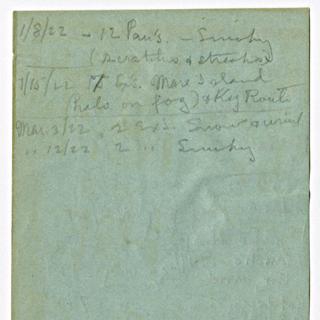 1/8/22 - 12 Pan's. - Smoky
(scratches & streaks)
1/15/22 Exs. Mare Island
(help on fog) & Key Route
Mar. 2/22 2 Exs. Snow & wind
" 12/22 2 " Smoky